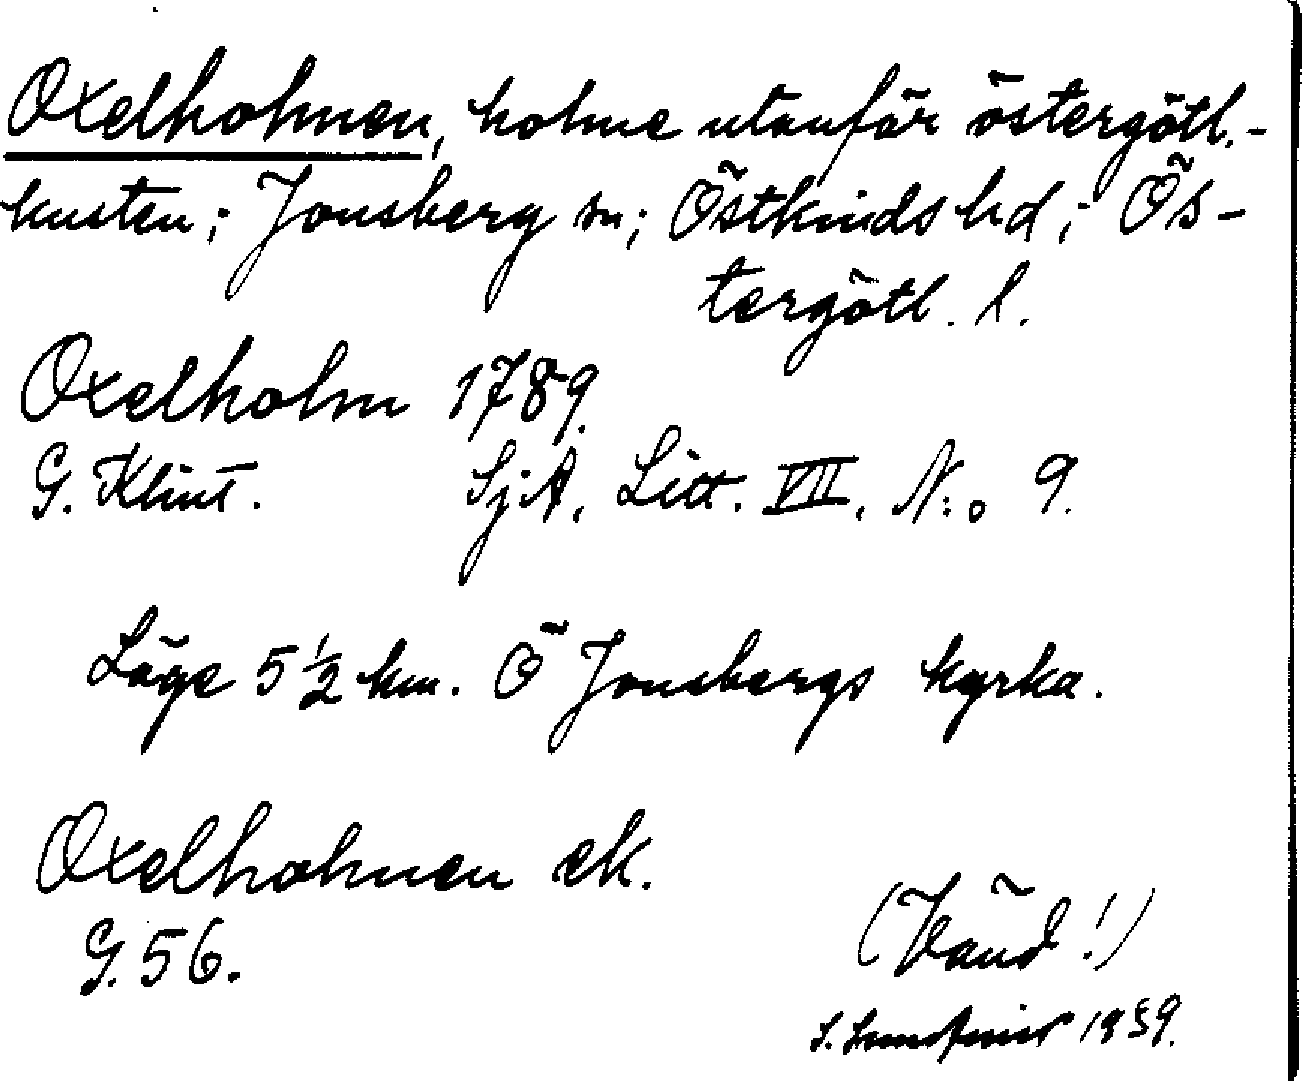 Oxelholmen, holme utanför östergötl.-
kusten; Jonsberg sn; Östkinds hd; Ös-
tergötl. l.
Oxelholm 1789.
G. Klint. SjA, Litt. VII, N:o 9.
Läge 5 1/2 km. Ö Jonsbergs kyrka.
Oxelholmen ek.
G. 56.
(Vänd!)
S. 1959.